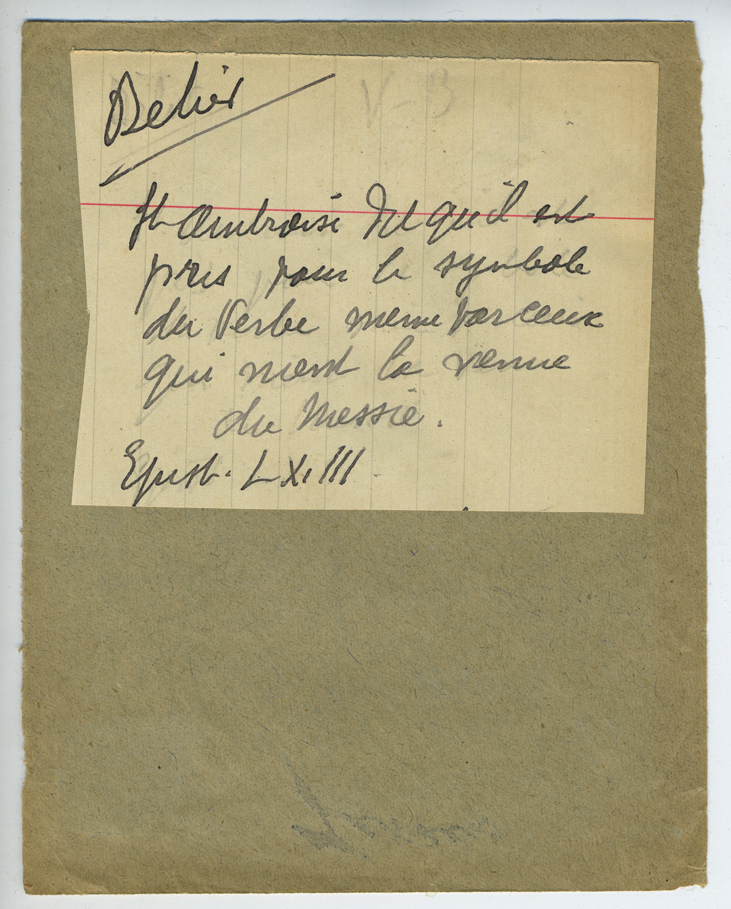 Belier
V-B
St Ambroise dit qu'il est
pris pour le symbole
du Verbe meme par ceux
qui nient la venue
du Messie.
Epist. LXIII